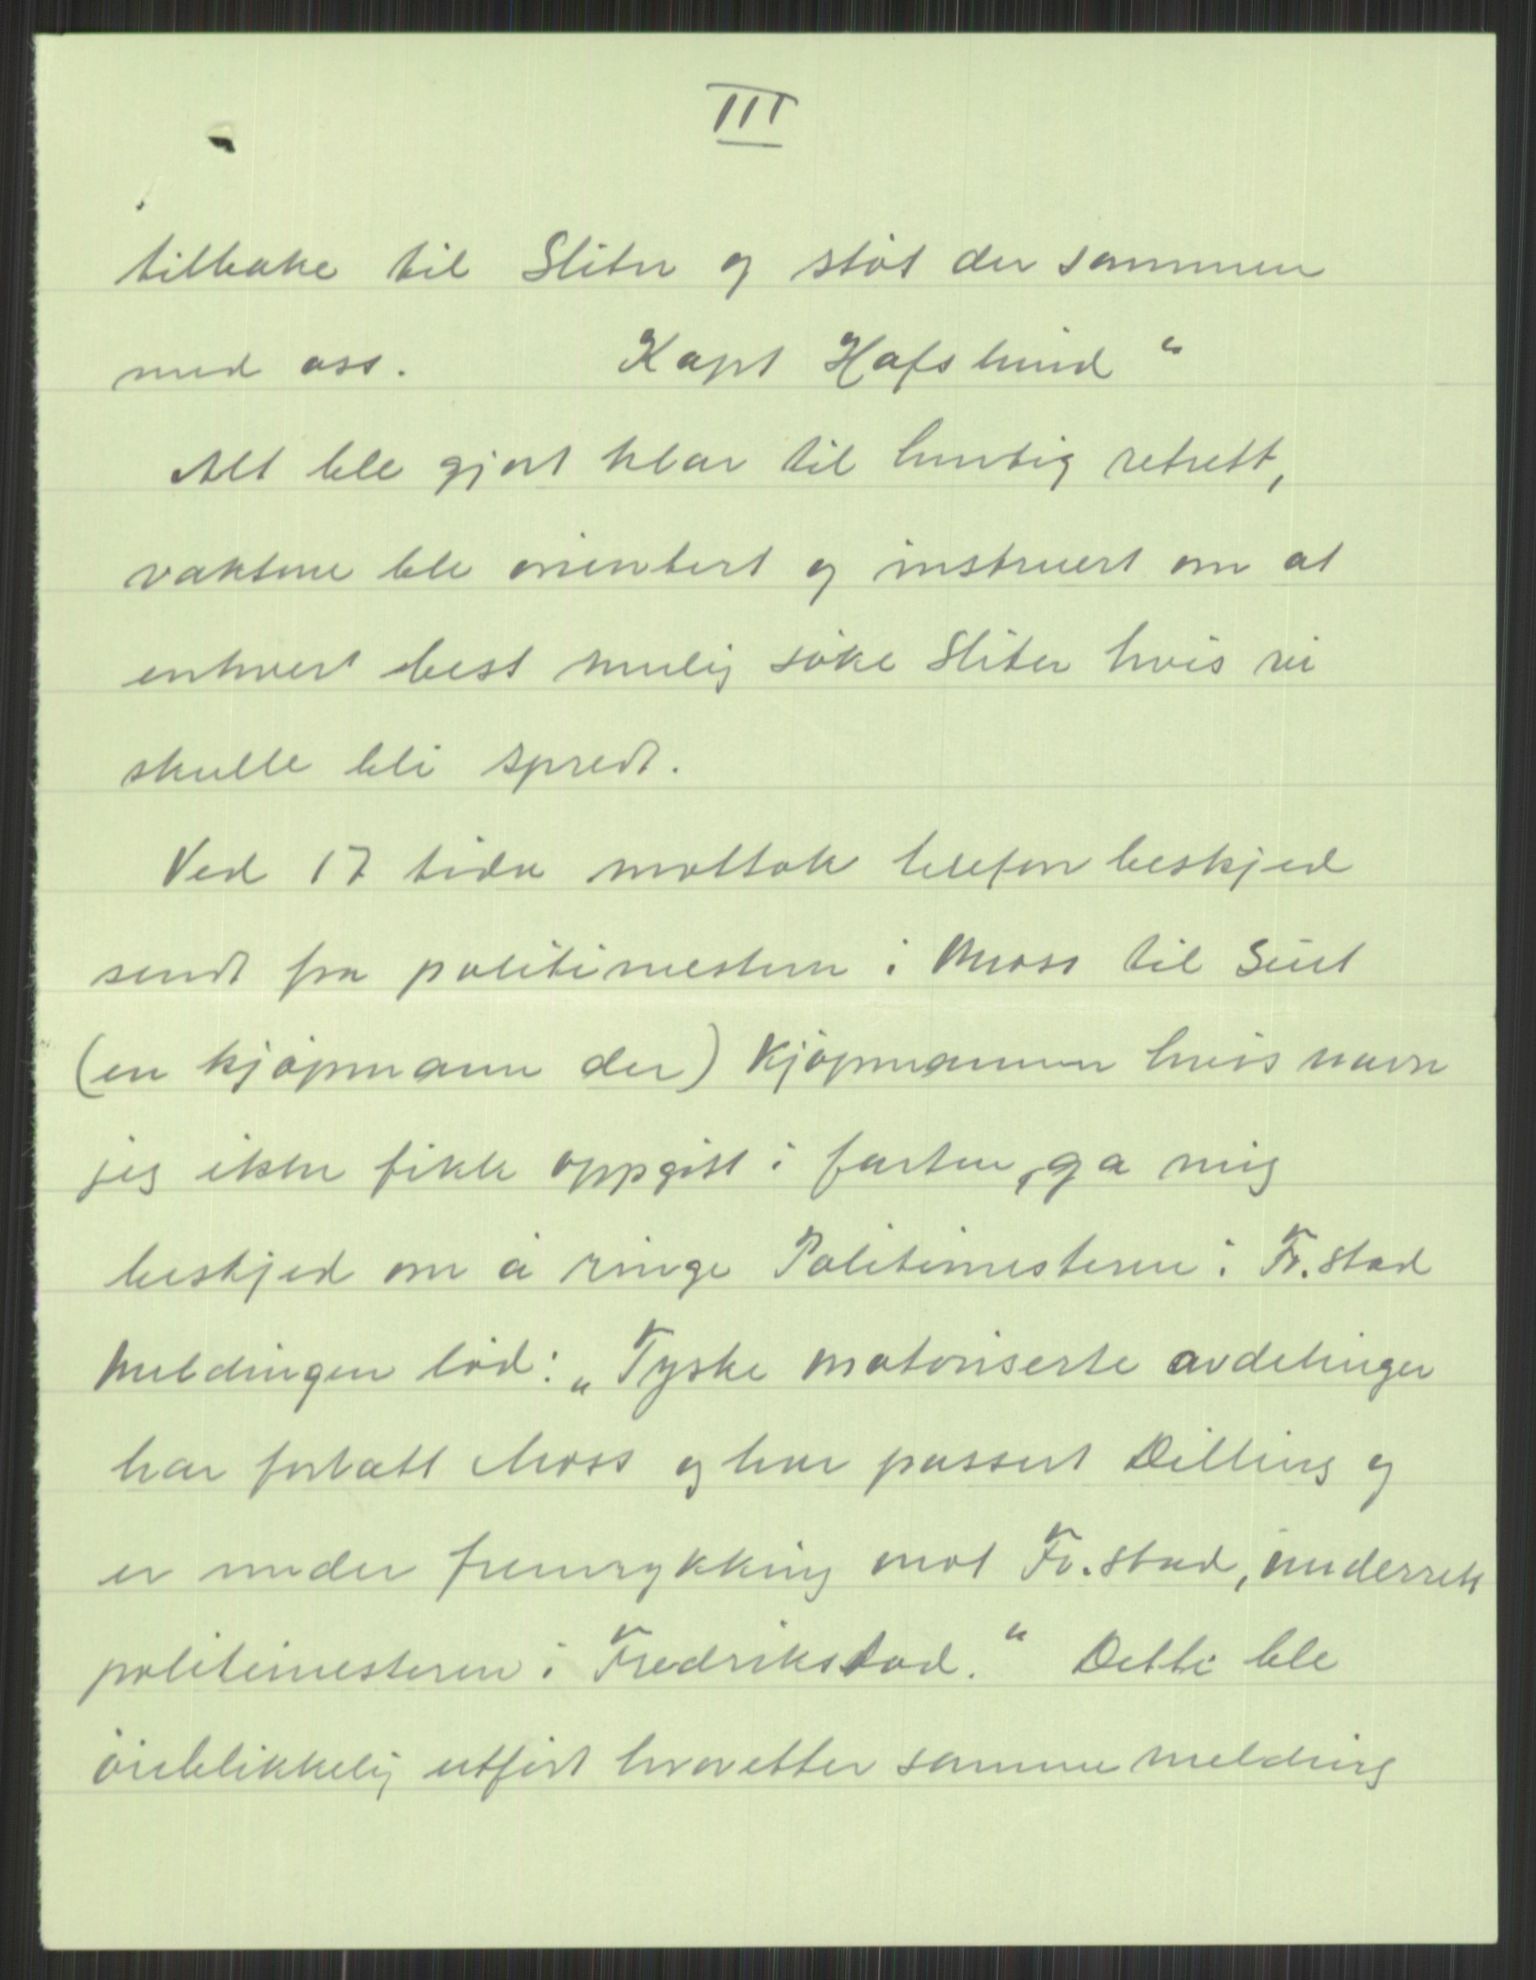 III
tilbake til Sliter og støt der sammen
med oss. Kapt Hafslund "
Alt ble gjort klar til hurtig retrett,
vaktene ble orientert og instruert om at
enhver best mulig søke Sliter hvis vi
skulle bli spredt.
Ved 17 tiden mottok telefon beskjed
sendt fra politimesteren i Moss til
(en kjøpmann der) Kjøpmannen hvis navn
jeg ikke fikk oppgitt i farten, ga mig
beskjed om å ringe Politimesteren i Fr.stad
Meldingen lød: „Tyske motoriserte avdelinger
har forlatt Moss og har passert Dilling og
er under fremrykking mot Fr.stad, underrett
politimesteren i Fredrikstad." Dette ble
øieblikkelig utført hvoretter samme melding